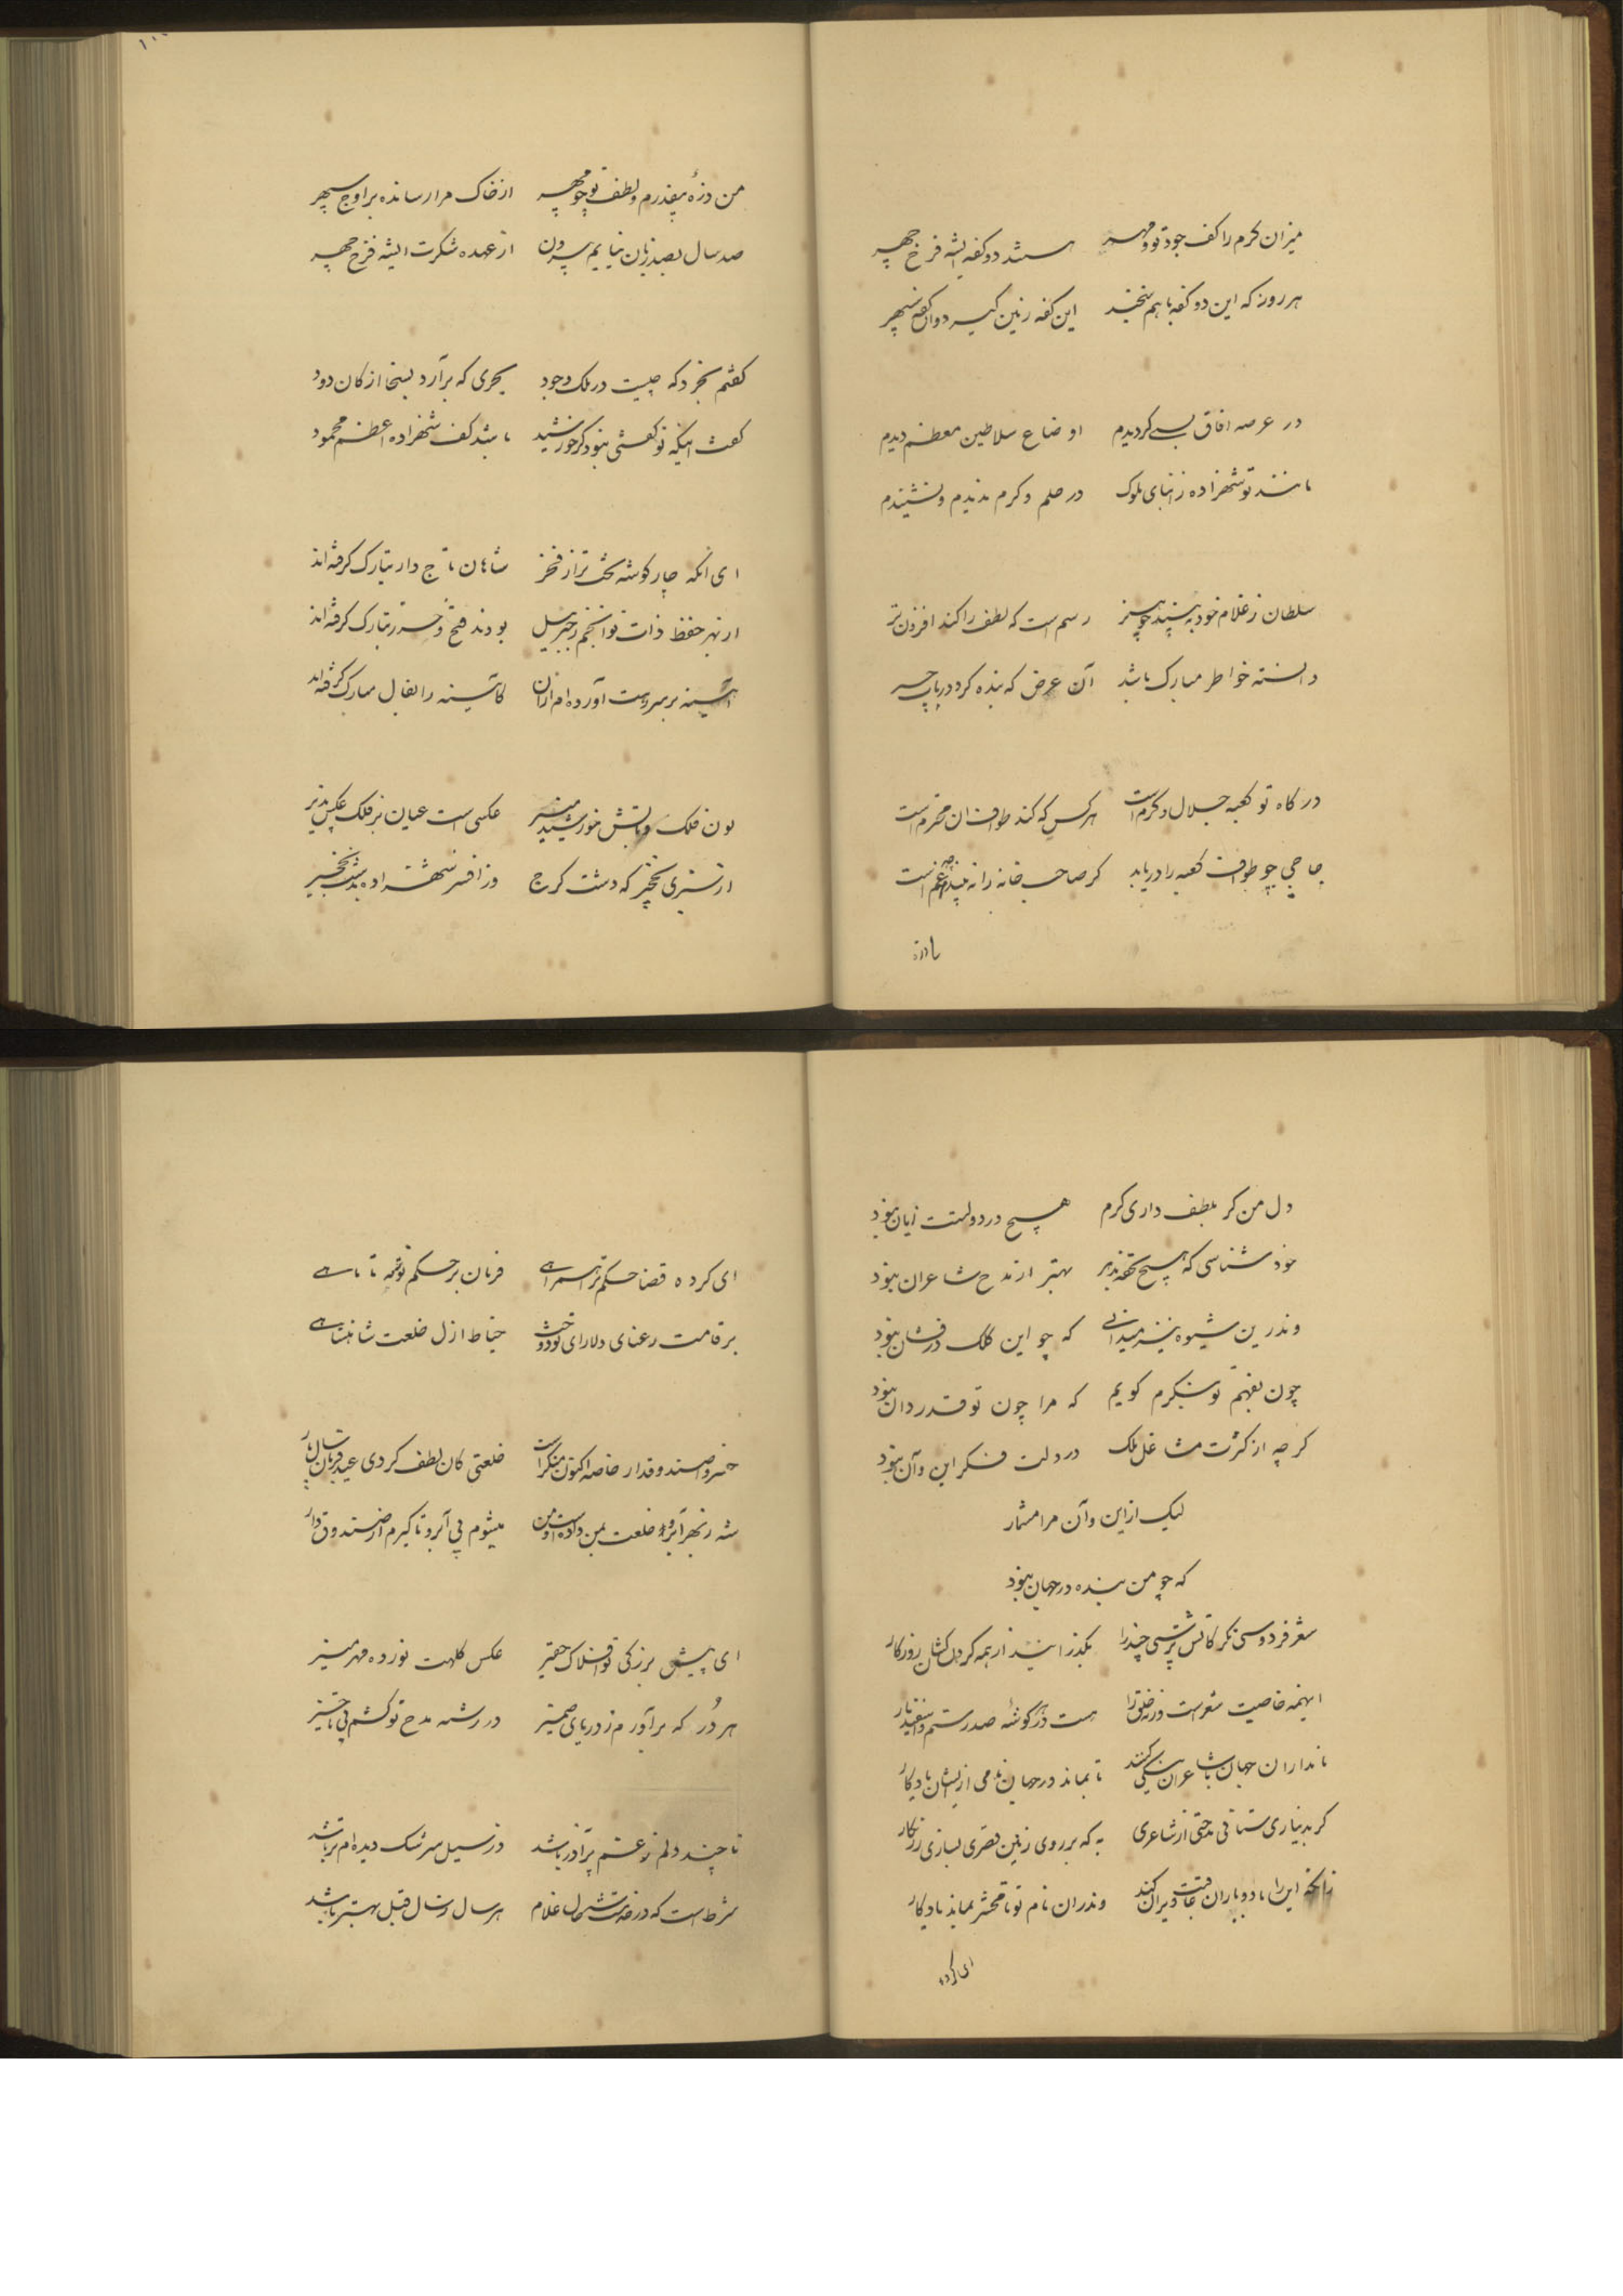 میزان کرم را کف جود تو و مهر هستند دو کفه ایشه فرخ چهر
هر روز که این دو کفه با هم سنجند این کفه زمین گیرد و آن کفه سپهر
در عرصه افاق بسی گردیدم اوضاع سلاطین معظم دیدم
مانند تو شهزاده ز ابنای ملوک در حلم و کرم ندیدم و نشنیدم
سلطان ز غلام خود به بیند چو هنر رسم است که لطف را کند افزون‌تر
دانسته خواطر مبارک باشد آن عرض که بنده کرد در باب
درگاه تو کعبه جلال و کرم است هر کس که کند طواف ان محترم است
حاجی چو طواف کعبه را دریابد گر صاحب خانه را نه بیند غم است
ماذره
۱۰۰
من ذرهٔ بیقدرم و لطف تو چو مهر از خاک مرا رسانده بر اوج سپهر
صد سال بصد زبان نیایم بیرون از عهده شکرت ایشه فرخ چهر
گفتم بخرد که چیست در ملک وجود بحری که برآرد بسخا از کان دود
گفت اینکه تو گفتی نبود گر خورشید باشد کف شهزاده اعظم محمود
ای آنکه چار گوشه تخت ترا ز فخر شاهان تاج دار بتارک گرفته‌اند
از بهر حفظ ذات تو انجم ز جبرئیل بودند فتح و تبارک گرفته‌اند
آئینه بر سر دست آورده‌ام از آن کآئینه را بفال مبارک گرفته‌اند
نون فلک و تابش خورشید منیر عکسی است عیان بر فلک عکس پذیر
از نخجیر که دشت کرج وز افسر شهزاده
دل من گر بلطف داری گرم هیچ در دولتت زیان نبود
خود شناسی که هیچ تحفه پذیر بهتر از مدح شاعران نبود
وندرین شیوه نیز میدانی که چو این کلک درفشان نبود
چون بفهم تو ننگرم گویم که مرا چون تو قدردان نبود
گرچه از کثرت مشاغل ملک در دلت فکر این و آن نبود
لیک از این و آن مرا مشمار
که چو من بنده در جهان نبود
شعر فردوسی نگر کاتش پرستی چند را بگذرانید از همه گردنکشان روزگار
اینهمه خاصیت شعر است ورنه خلق را هست در هر گوشه صد رستم و اسفندیار
نامداران جهان با شاعران نیکی کنند تا بماند در جهان نامی از ایشان یادگار
گر بدیناری ستانی مدحتی از شاعری به که بر روی زمین قصری بسازی زرنگار
زانکه این را باد و باران عاقبت ویران کند وندران نام تو تا محشر بماند یادگار
ای کرده
ای کرده قضا حکم ترا همراهی فرمان بر حکم تو ز مه تا ماهی
بر قامت رعنای دلارای تو دوخت خیاط ازل خلعت شاهنشاهی
خسروا صندوقدار خاصه اکنون منکر است خلعتی کان لطف کردی عید قربان پار
شه ز بهر آبرو خلعت بمن داده است و من میشوم بی آبرو تا گیرم از صندوقدار
ای پیش بزرگی تو افلاک حقیر عکس کلهت نوزده مهر منیر
هر دُر که برآورم ز دریای ضمیر در رشته مدح تو کشم بی تاخیر
تا چند دلم ز غم پرآذر باشد وز سیل سرشک دیده‌ام تر باشد
شرط است که در خدمت شاهان غلام هر سال ز سال قبل بهتر باشد